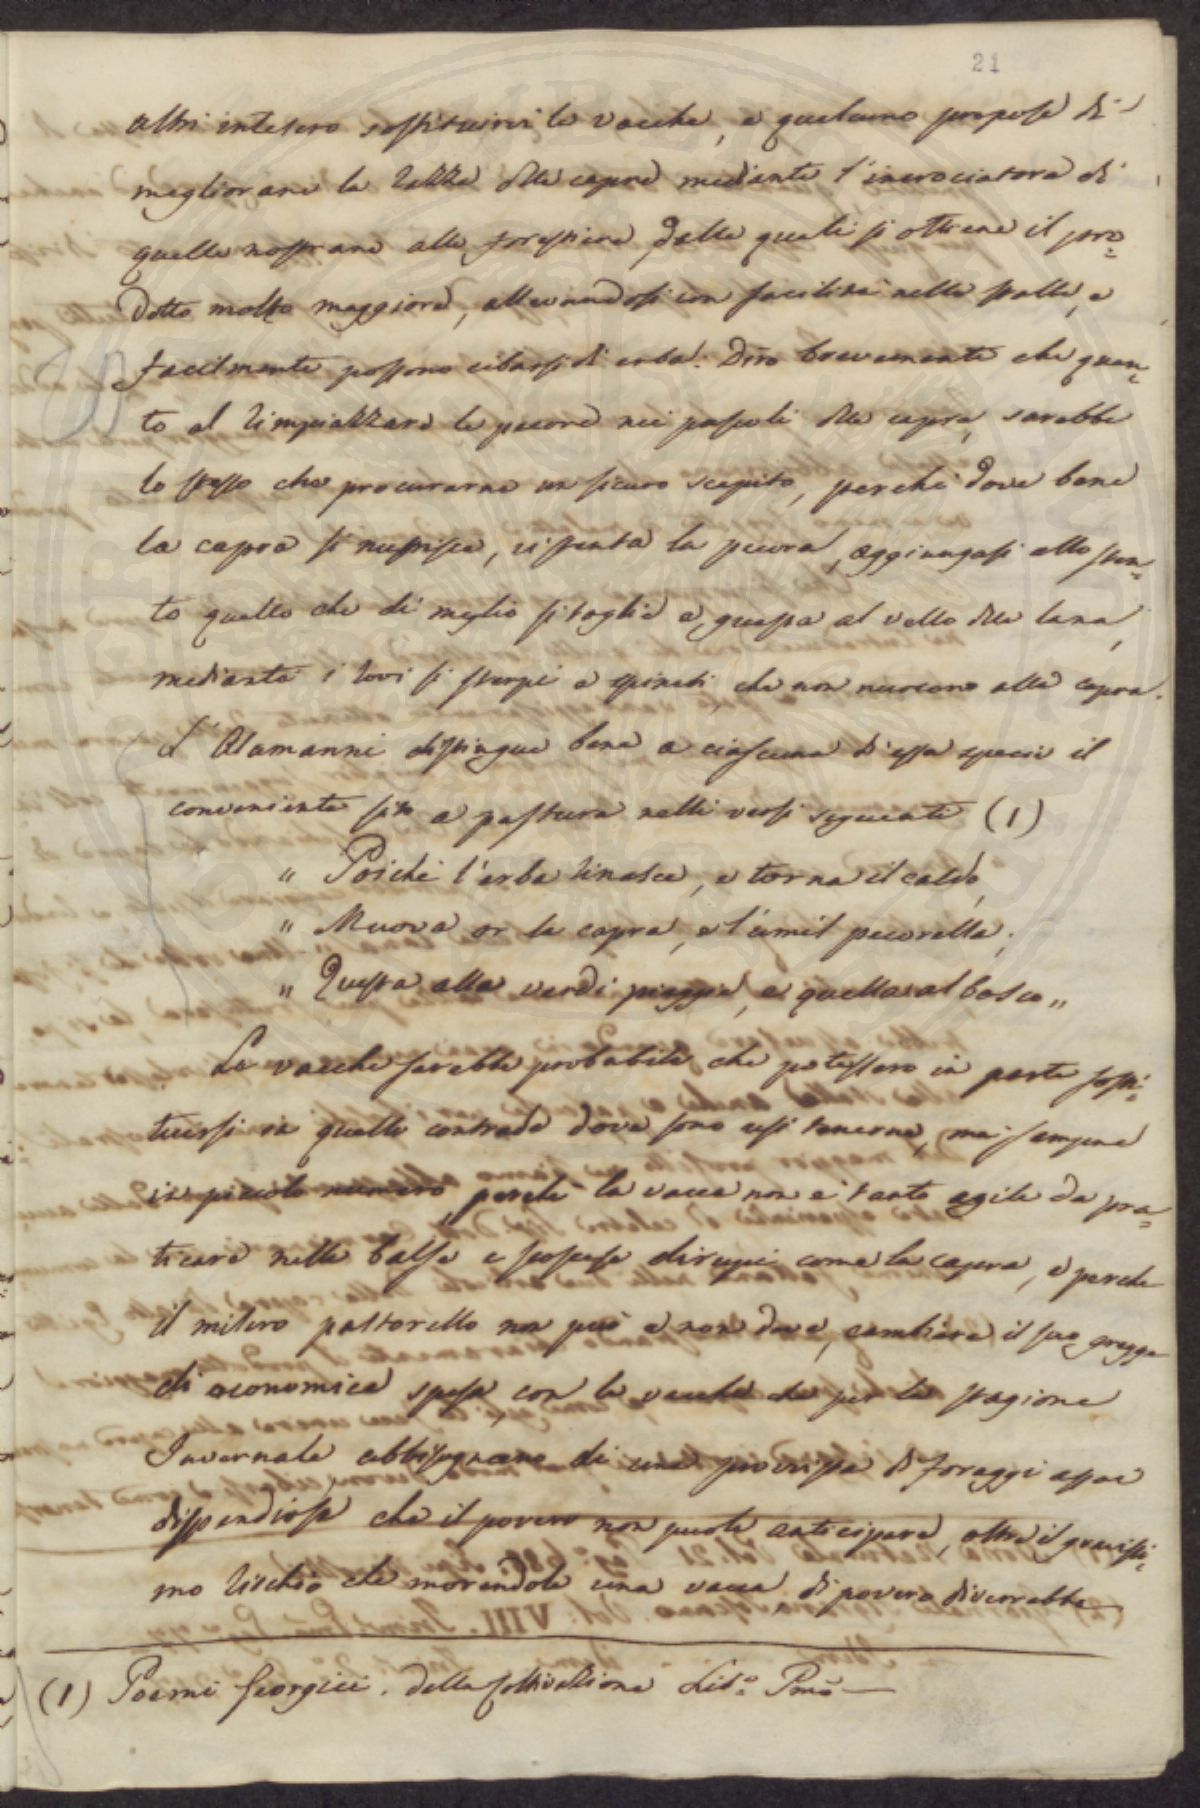 21
altri intesero sostituirvi le vacche, e qualcuno propose di
migliorare la razza delle capre mediante l'incrociatora di
quelle nostrane alle forestiere, dalle quali si ottiene il pro=
dotto molto maggiore, allevandosi con facilità nelle stalle, e
facilmente possono cibarsi di erba. Dirò brevemente che quan=
to al rimpiazzare le pecore nei pascoli delle capre, sarebbe
lo stesso che procurarne un sicuro scapito, perché dove bene
la capra si nutrisce, vi stenta la pecora, aggiungasi allo sten=
to quello che di meglio si toglie a questa al vello della lana,
mediante i rovi si sterpi e spineti, che non nuocono alle capre.
L'Alamanni distingue bene a ciascuna d'esse specie il
conveniente sito a pastura nelli versi seguenti (1)
" Poiché l'erba rinasce, e torna il caldo,
" Muova or la capra, e l'umil pecorella;
" Questa alle verdi piaggie, e quella al bosco "
Le vacche sarebbe probabile che potessero in parte sosti=
tuirsi in quelle contrade dove sono usi tenerne, ma sempre
in piccolo numero, perché la vacca non è tanto agile da pra=
ticare nelle balse e scoscese dirupi come la capra, e perche
il misero pastorello non può e non deve, cambiare il suo gregge
di economica spesa, con le vacche che per la stagione
Invernale abbisognano di una provvista di foraggi assai
dispendiosa che il povero non puole anticipare, oltre il gravissi=
mo rischio che morendole una vacca di povero diverrebbe
(1) Poemi Georgici. della Coltivazione Lib.o Pmo